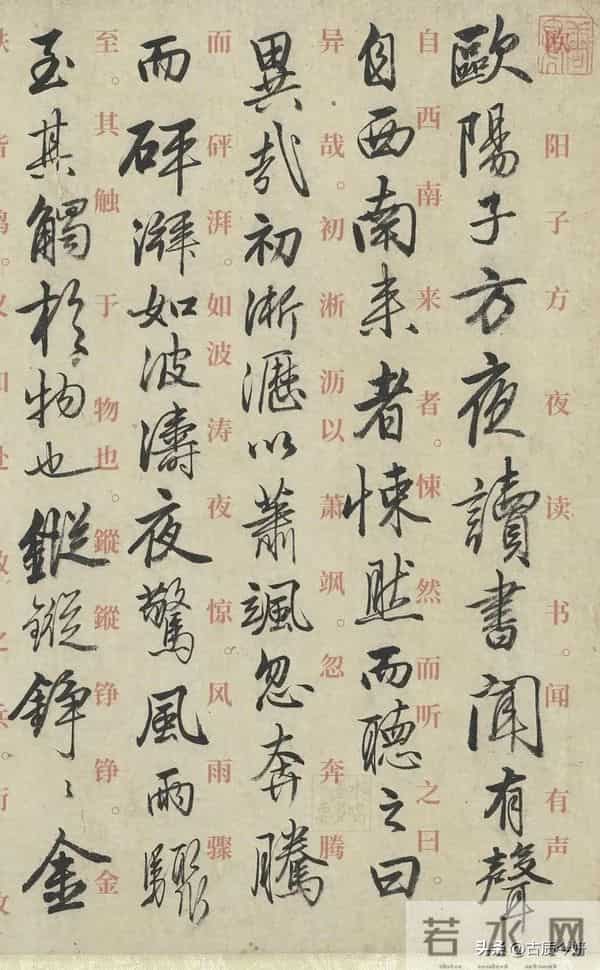 欧阳子方夜读书。闻有声
歐陽子方夜讀書聞有聲
自西南来者。悚然而听之曰。
自西南来者悚然而聽之曰
异哉。初淅沥以萧飒。忽奔腾
異哉初淅瀝以蕭颯忽奔騰
而砰湃。如波涛夜惊。风雨骤
而砰湃如波濤夜驚風雨驟
至。其触于物也。鏦鏦铮铮。金
至其觸於物也鏦鏦錚〻金
若水网
头条 @古质今妍